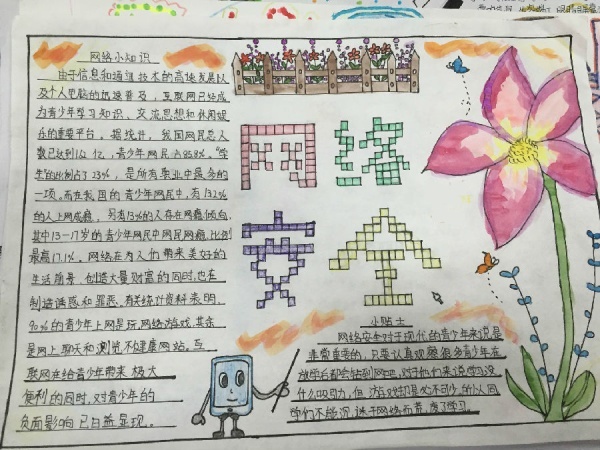 网络小知识
由于信息和通讯技术的高速发展以
及个人电脑的迅速普及，互联网已经成
为青少年学习知识、交流思想和休闲娱
乐的重要平台。据统计，我国网民总人
数已达到1.62亿，青少年网民占85.8%。“学
生”的比例占了23%，是所有职业中最多的
一项。而在我国的青少年网民中，有13.2%
的人上网成瘾，另有13%的人存在网瘾倾向，
其中13－17岁的青少年网民中网民网瘾比例
最高17.1%。网络在为人们带来美好的
生活前景、创造大量财富的同时，也在
制造诱惑和罪恶。有关统计资料表明，
90%的青少年上网是玩网络游戏，其余
是网上聊天和浏览不健康网站。互
联网在给青少年带来极大
便利的同时，对青少年的
负面影响已日益显现。
网络
安全
小贴士
网络安全对于现代的青少年来说是
非常重要的，只要认真观察很多青少年在
放学后都会钻到网吧，对于他们来说学习没
什么吸引力，但游戏却是必不可少的，同
学们不能沉迷于网络而荒废了学习。